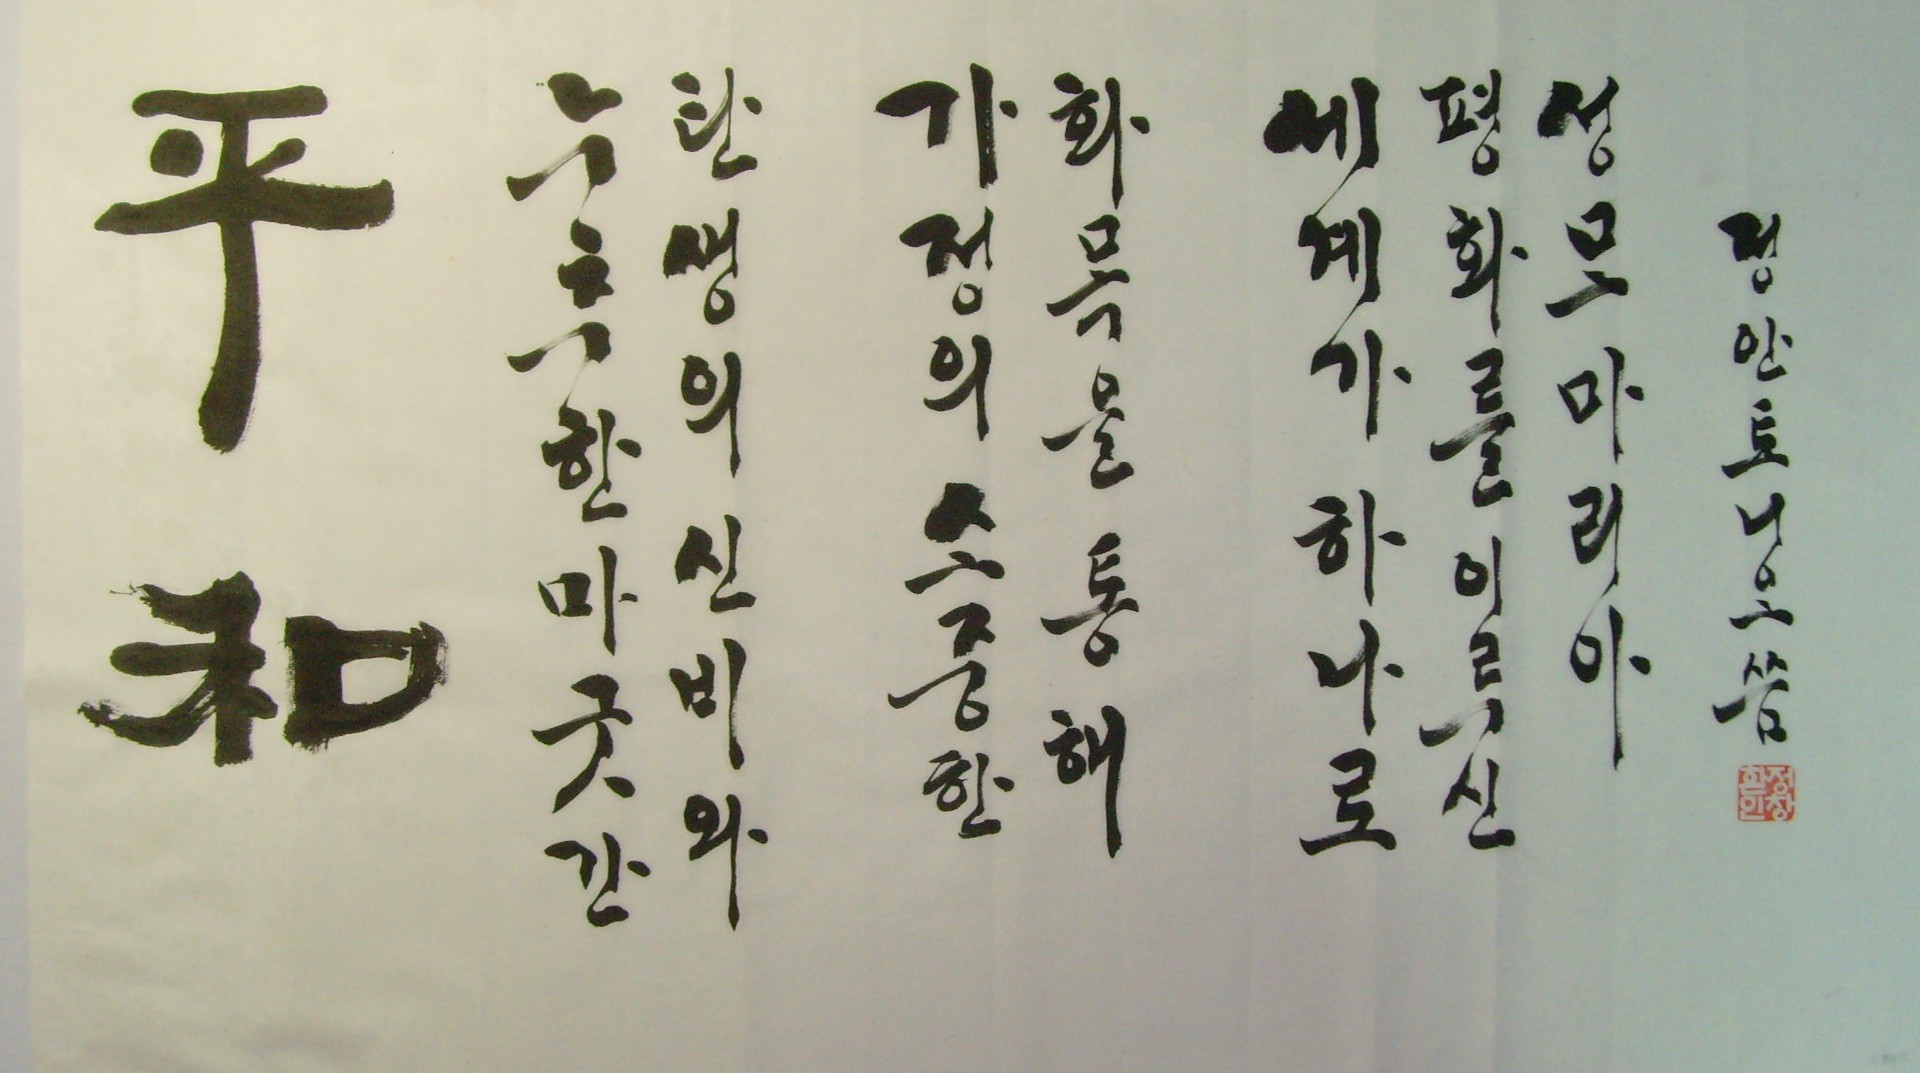 平和
누추한 마굿간
탄생의 신비와
가정의 소중한
화목을 통해
세계가 하나로
평화를 이루신
성모 마리아
정안토니오 씀